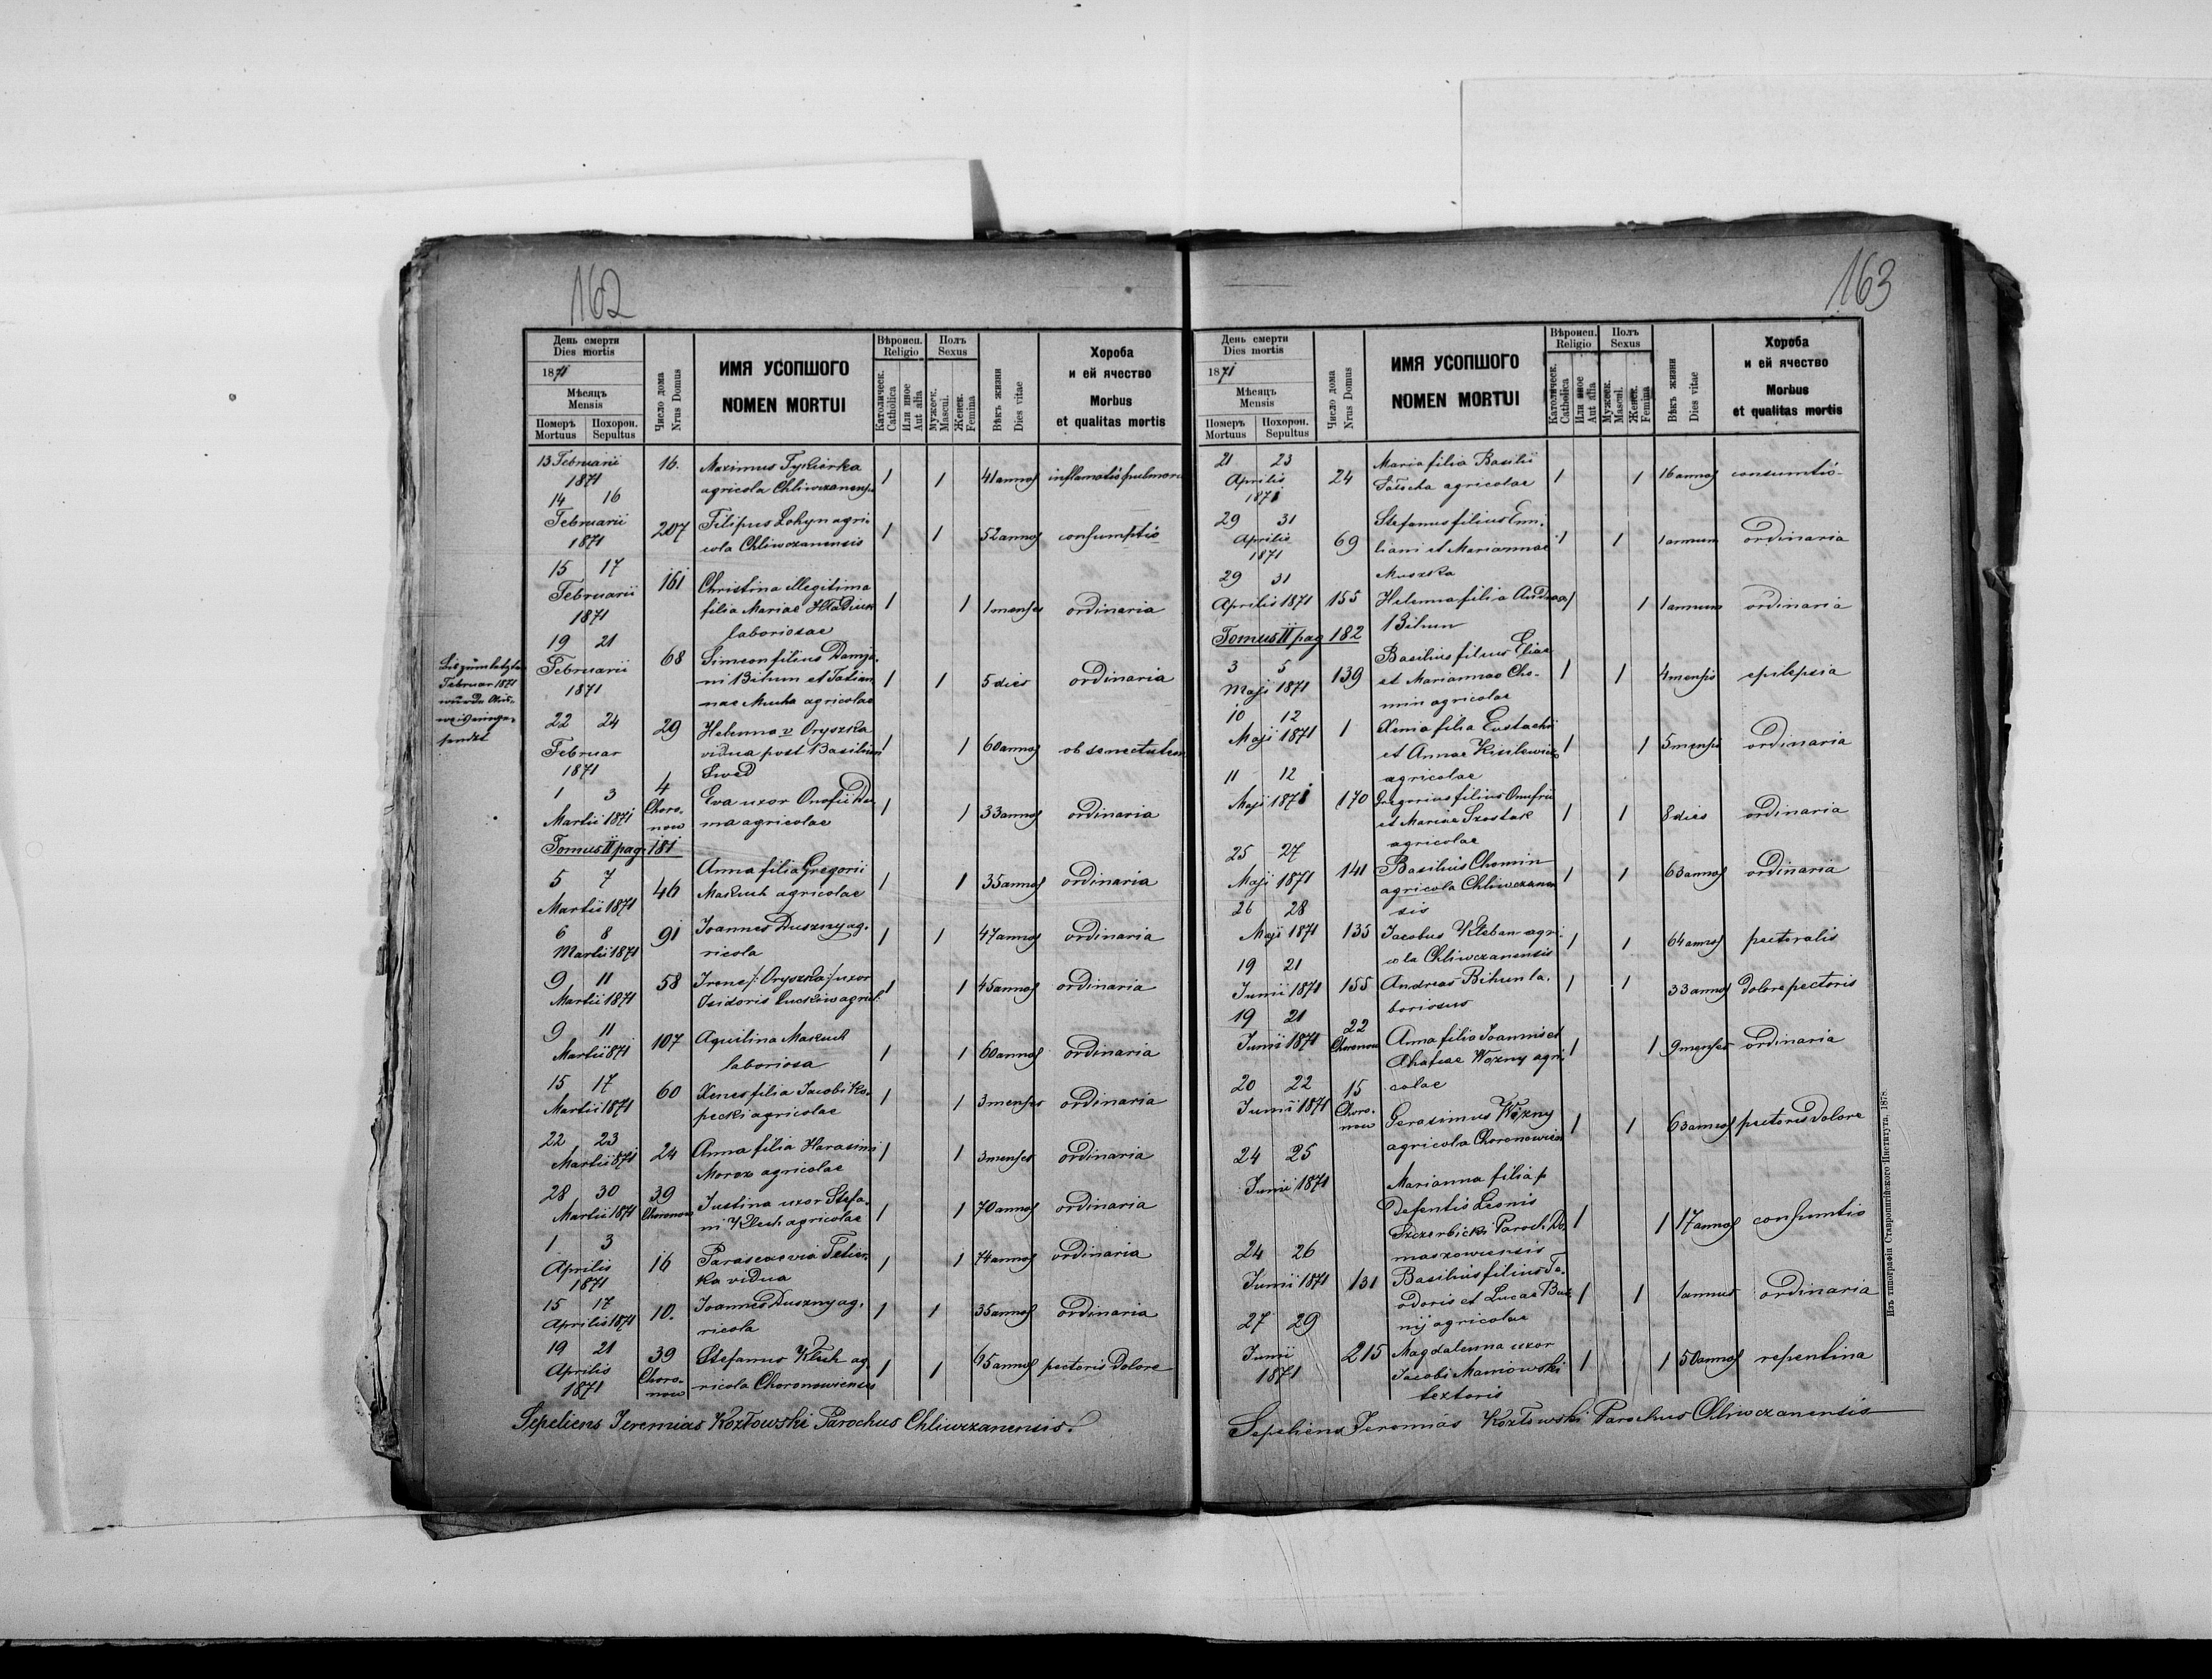 162
День смерти
Dies mortis
1871
Мѣсяцъ
Mensis
Померъ Похорон.
Mortuus Sepultus
Число дома
Nrus Domus
ИМЯ УСОПШОГО
NOMEN MORTUI
Вѣроисп.
Religio
Католическ.
Catholica
Или иное
Aut alia
Полъ
Sexus
Мужеск.
Mascul.
Женск.
Femina
Вѣкъ жизни
Dies vitae
Хороба
и ей ячество
Morbus
et qualitas mortis
13 Februarii 16. Maximus Tykiorka
1871 agricola Chliwczanensis 1 1 41 annos inflamatio pulmon
14 16
Februarii 207 Filipus Lohyn agri-
1871 cola Chliwczanensis 1 1 52 annos consumptio
15 17
Februarii 161 Christina illegitima
1871 filia Mariae Hladiuk 1 1 1 menses ordinaria
laboriosae
19 21
Februarii 68 Simeon filius Damja-
1871 ni Bihun et Tatian- 1 1 5 dies ordinaria
nae Mucha agricolae
Bis zum letzten
Februar 1871
wurde Aus-
weis einge-
sendet
22 24 29 Helenna v Oryszka
Februar vidua post Basilium 1 1 60 annos ob senectutem
1871 Swed
1 3 4
Martii 1871 Choro-
now Eva uxor Onofrii Da-
ma agricolae 1 1 33 annos ordinaria
Tomus II pag. 181
5 7 46 Anna filia Gregorii
Martii 1871 Maziuch agricolae 1 1 35 annos ordinaria
6 8 91 Joannes Duszny ag-
Martii 1871 ricola 1 1 47 annos ordinaria
9 11 58 Irene /: Oryszka :/ uxor
Martii 1871 Isidoris Lucskiw agric. 1 1 45 annos ordinaria
9 11 107 Aquilina Maziuch
Martii 871 laboriosa 1 1 60 annos ordinaria
15 17 60 Xenes filia Jacobi Ko-
Martii 1871 pecki agricolae 1 1 3 menses ordinaria
22 23 24 Anna filia Harasimi
Martii 871 Moroz agricolae 1 1 3 menses ordinaria
28 30 39
Martii 1871 Choronow Justina uxor Stefa-
ni Klech agricolae 1 1 70 annos ordinaria
1 3
Aprilis 16 Parascewia Tetior-
1871 ka vidua 1 1 74 annos ordinaria
15 17 10. Joannes Duszny ag-
Aprilis 1871 ricola 1 1 35 annos ordinaria
19 21 39
Aprilis Choro-
1871 now Stefanus Klech ag-
ricola Choronowiensis 1 1 65 annos pectoris dolore
Sepeliens Jeremias Kozłowski Parochus Chliwczanensis.
163
День смерти
Dies mortis
1871
Мѣсяцъ
Mensis
Померъ Похорон.
Mortuus Sepultus
Число дома
Nrus Domus
ИМЯ УСОПШОГО
NOMEN MORTUI
Вѣроисп.
Religio
Католическ.
Catholica
Или иное
Aut alia
Полъ
Sexus
Мужеск.
Mascul.
Женск.
Femina
Вѣкъ жизни
Dies vitae
Хороба
и ей ячество
Morbus
et qualitas mortis
21 23
Aprilis 24 Maria filia Basilii
1871 agricolae 1 1 16 annos consumtio
29 31
Aprilis 69 Stefanus filius Emi-
1871 liani et Mariannae 1 1 1 annum ordinaria
Muszka
29 31
Aprilis 1871 155 Helenna filia Andreas 1 1 1 annum ordinaria
Bihun
Tomus II pag 182
3 5 139 Basilius filius Eliae
Maji 1871 et Mariannae Cho- 1 1 4 mensis epilepsia
min agricolae
10 12 1 Xenia filia Eustachii
Maji 1871 et Annae Kiselewicz 1 1 5 mensis ordinaria
agricolae
11 12
Maji 1871 170 Gregorius filius Onufrii
et Mariae Szostak 1 1 8 dies ordinaria
agricolae
25 27
Maji 1871 141 Basilius Chomin
agricola Chliwczanen- 1 1 63 annos ordinaria
sis
26 28
Maji 1871 135 Jacobus Kleban agri-
cola Chliwczanensis 1 1 64 annos pectoralis
19 21
Junii 1871 155 Andreas Bihun la-
boriosus 1 1 33 annos dolore pectoris
19 21
Junii 1871 22
Choronow Anna filia Joannis et
Wozny agri- 1 1 9 menses ordinaria
colae
20 22
Junii 1871 15
Choro-
now Gerasimus Wozny
agricola Choronowien 1 1 63 annos pectoris dolore
24 25
Junii 1871 Marianna filia p
Defentis Leonis
Szczerbicki Paroch. Do- 1 1 17 annos consumtio
maszowiensis
24 26
Junii 1871 131 Basilius filius Te-
odoris et Lucae 1 1 1 annus ordinaria
nij agricolae
27 29
Junii 215 Magdalenna uxor
1871 Jacobi Maniowski 1 1 50 annos repentina
textoris
Sepeliens Jeremias Kozłowski Parochus Chliwczanensis
Изъ типографіи Ставропигійского Института. 1878.